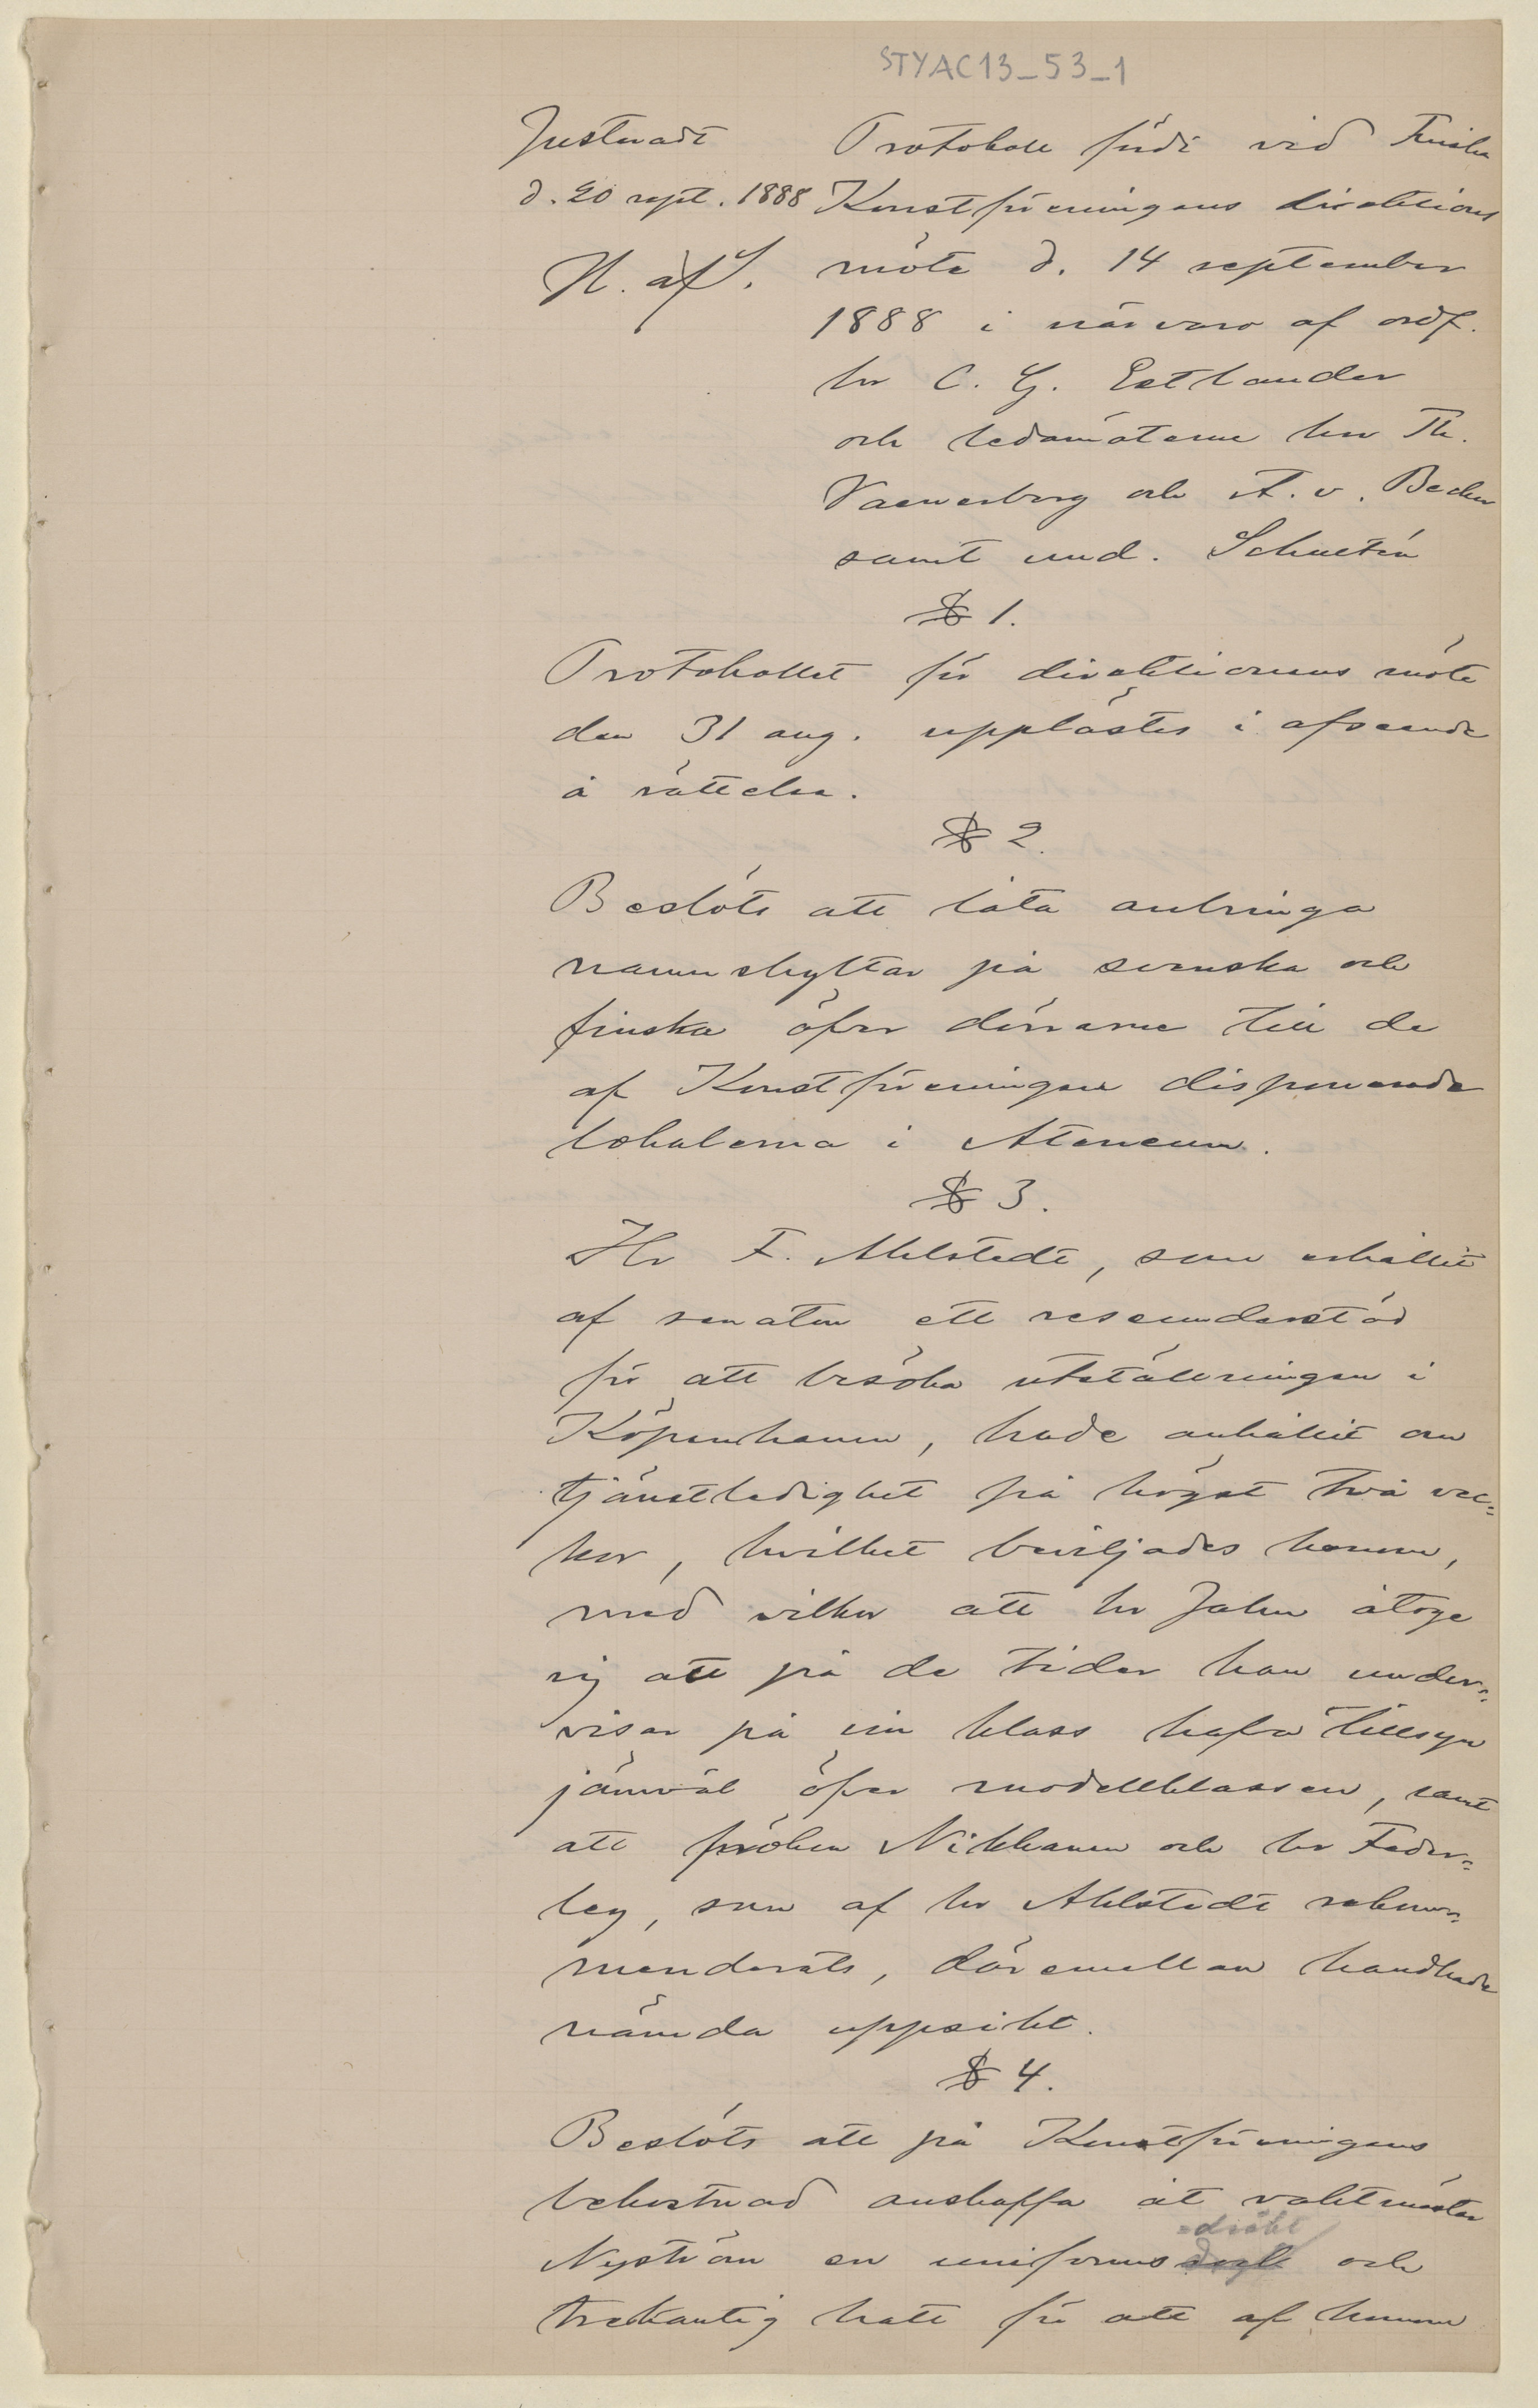 STYAC13_53_1
Justeradt
d. 20 sept. 1888
N. af S.
Protokoll fördt vid Finska
Konstföreningens direktions
möte d. 14 september
1888 i närvaro af ordf.
hr C. G. Estlander
och ledamöterne hrr Th.
Waenerberg och A. v. Becker
samt und. Schultén
§ 1.
Protokollet för direktionens möte
den 31 aug. upplästes i afseende
å rättelse.
§ 2.
Beslöts att låta anbringa
namnskyltar på svenska och
finska öfver dörrarne till de
af Konstföreningen disponerade
lokalerna i Ateneum.
§ 3.
Hr F. Ahlstedt, som erhållit
af senaten ett reseunderstöd
för att besöka utställningen i
Köpenhamn, hade anhållit om
tjänstledighet på högst två vec=
kor, hvilket beviljades honom,
med vilkor att hr Jahn åtoge
sig att på de tider han under=
visar på sin klass hafva tillsyn
jämväl öfver modellklassen, samt
att fröken Nikkanen och hr Feder=
ley, som af hr Ahlstedt rekom=
menderats, däremellan handhade
nämda uppsikt.
§ 4.
Beslöts att på Konstföreningens
bekostnad anskaffa åt vaktmästar
=dräkt
Nyström en uniforms och
trekantig hatt för att af honom